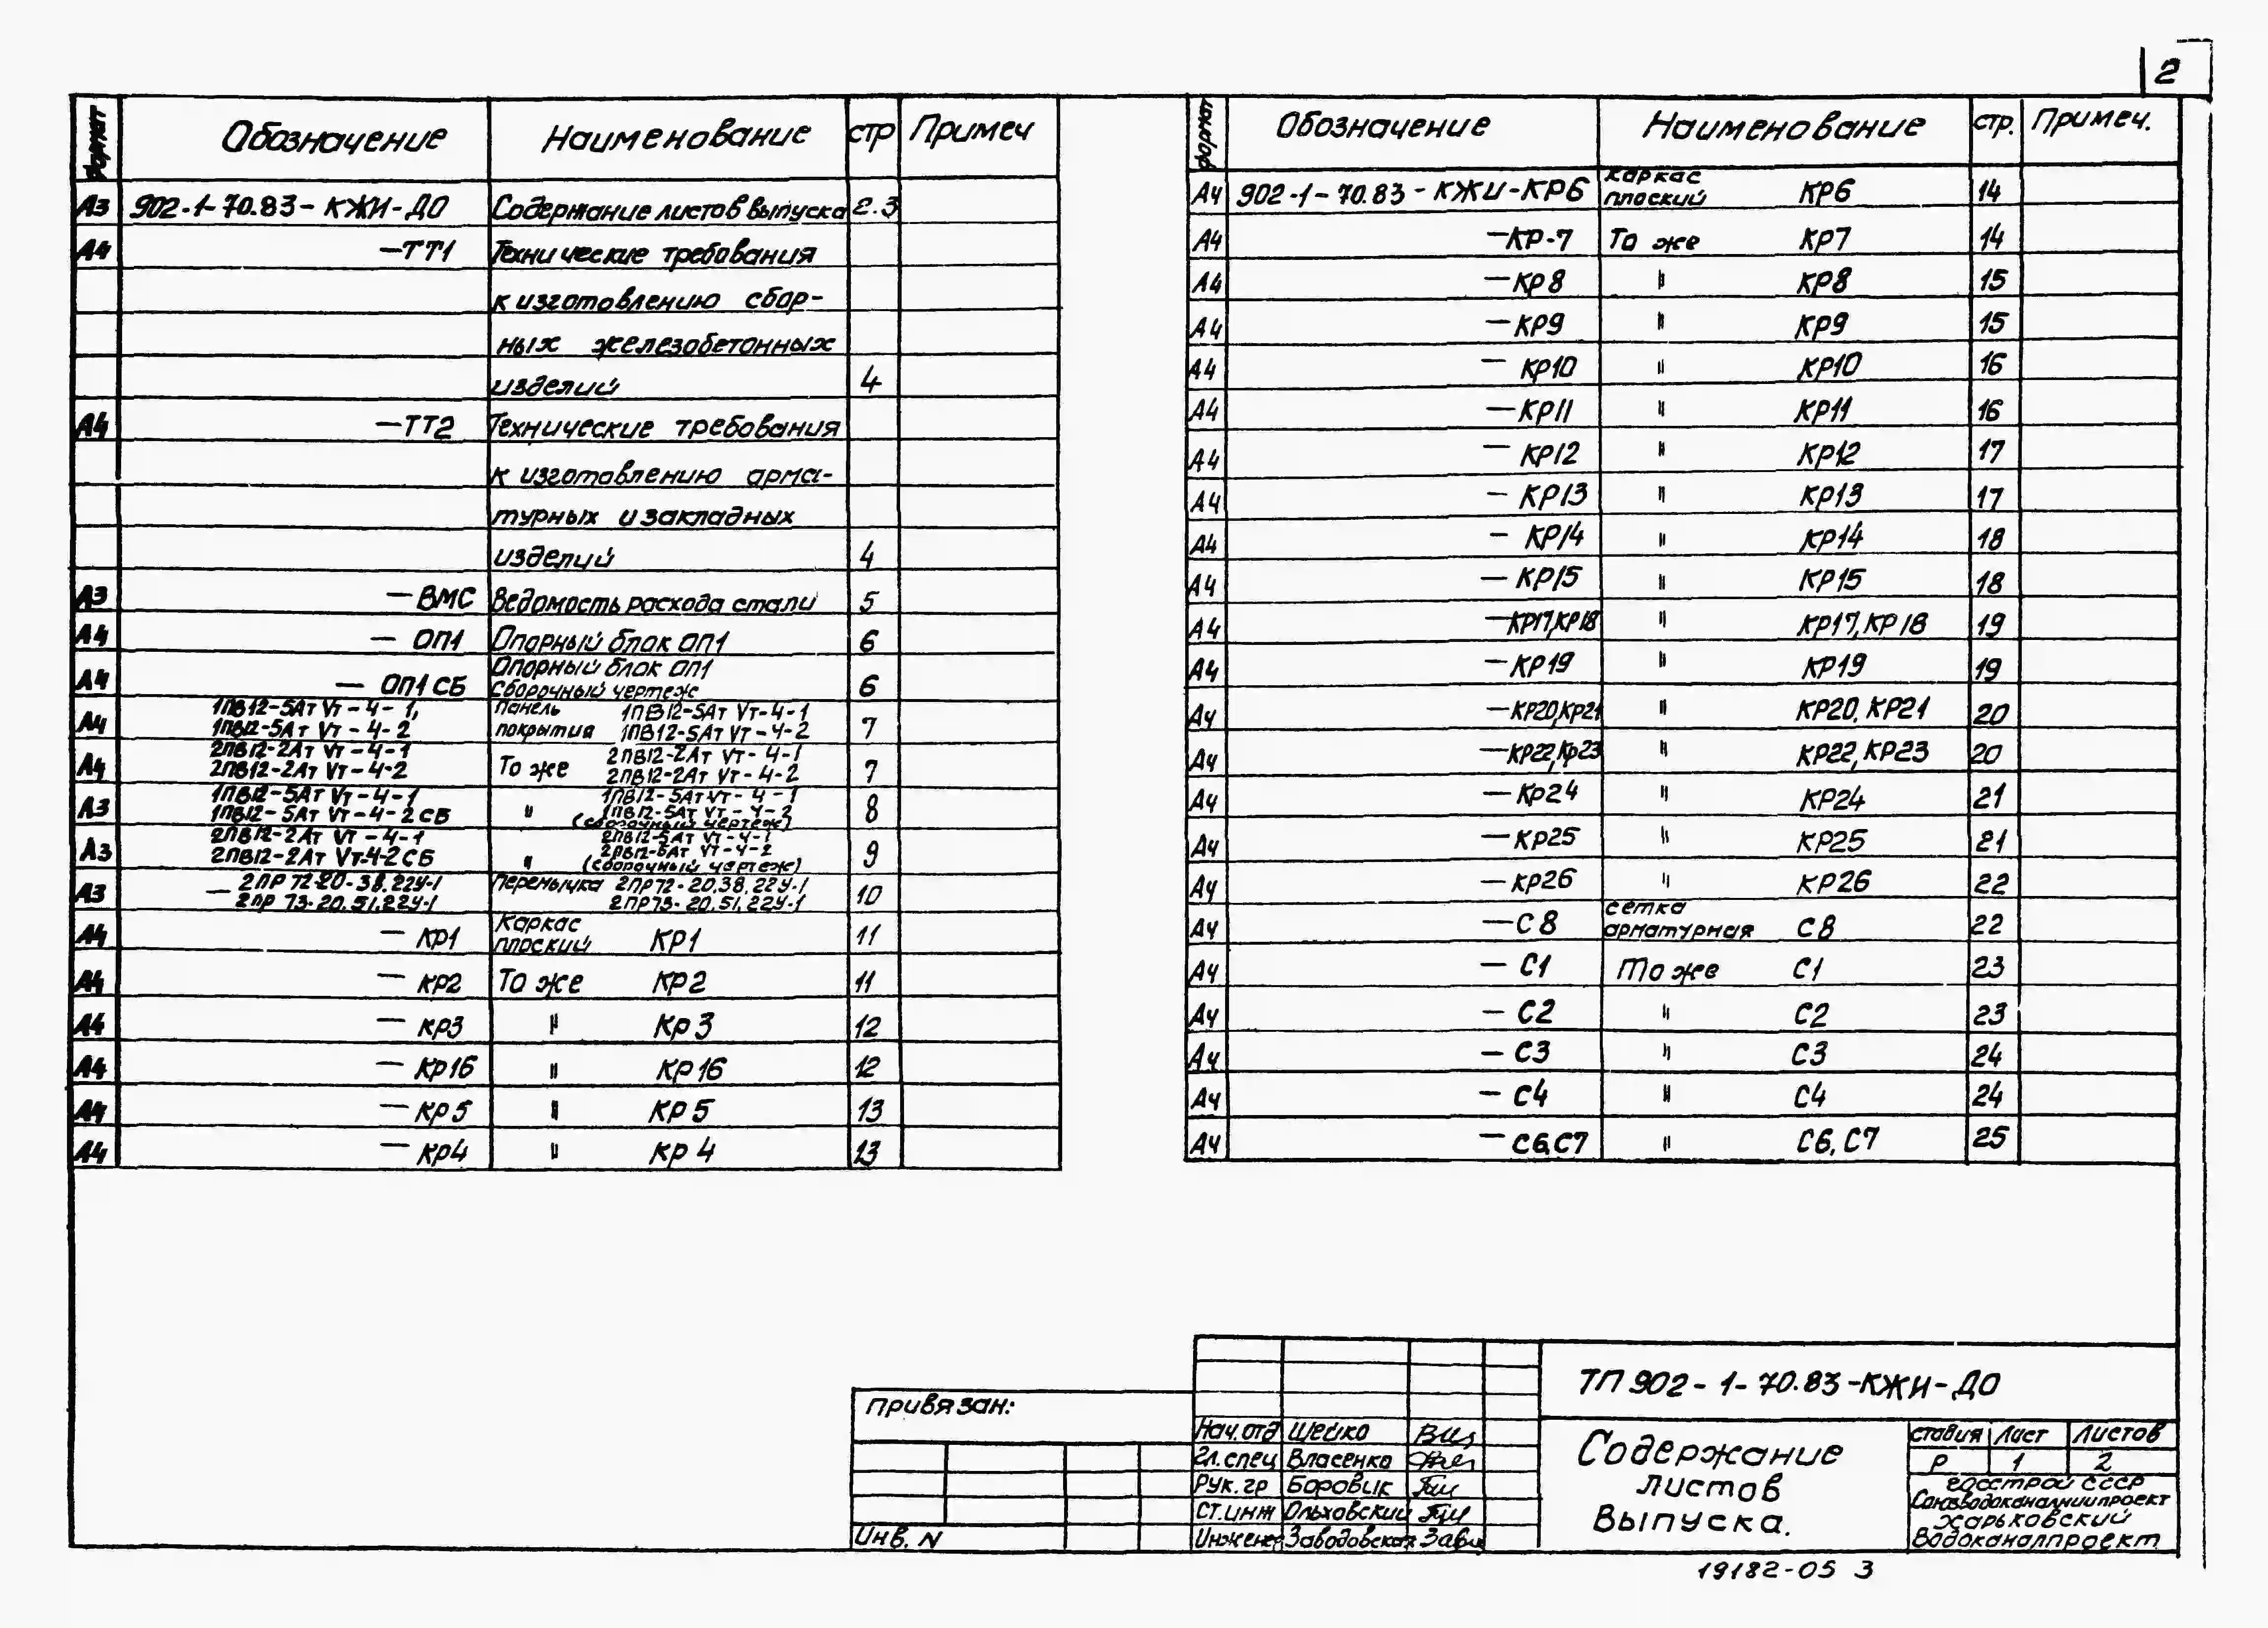 2
формат Обозначение Наименование стр Примеч
А3 902-1-70.83-КЖИ-ДО Содержание листов выпуска 2.3
А4 —ТТ1 Технические требования
к изготовлению сбор-
ных железобетонных
изделий 4
А4 —ТТ2 Технические требования
к изготовлению арма-
турных и закладных
изделий 4
А3 —ВМС Ведомость расхода стали 5
А4 — ОП1 Опорный блок ОП1 6
А4 — ОП1 СБ Опорный блок ОП1
Сборочный чертеж 6
А4 1ПВ12-5Ат Vт-4-1, Панель 1ПВ12-5Ат Vт-4-1
1ПВ12-5Ат Vт-4-2 покрытия 1ПВ12-5Ат Vт-4-2 7
А4 2ПВ12-2Ат Vт-4-1 То же 2ПВ12-2Ат Vт-4-1
2ПВ12-2Ат Vт-4-2 2ПВ12-2Ат Vт-4-2 7
А3 1ПВ12-5Ат Vт-4-1 " 1ПВ12-5Ат Vт-4-1
1ПВ12-5Ат Vт-4-2 СБ 1ПВ12-5Ат Vт-4-2 8
(сборочный чертеж)
А3 2ПВ12-2Ат Vт-4-1 " 2ПВ12-5Ат Vт-4-1
2ПВ12-2Ат Vт-4-2 СБ 2ПВ12-5Ат Vт-4-2 9
(сборочный чертеж)
А3 — 2ПР 72-20-38.22У-1 Перемычка 2ПР72-20.38.22У-1
2ПР 73-20.51.22У-1 2ПР73-20.51.22У-1 10
А4 — КР1 Каркас
плоский КР1 11
А4 — КР2 То же КР2 11
А4 — КР3 " КР3 12
А4 — КР16 " КР16 12
А4 — КР5 " КР5 13
А4 — КР4 " КР4 13
формат Обозначение Наименование стр. Примеч.
А4 902-1-70.83-КЖИ-КР6 каркас
плоский КР6 14
А4 —КР-7 То же КР7 14
А4 —КР8 " КР8 15
А4 —КР9 " КР9 15
А4 — КР10 " КР10 16
А4 —КР11 " КР11 16
А4 — КР12 " КР12 17
А4 — КР13 " КР13 17
А4 — КР14 " КР14 18
А4 — КР15 " КР15 18
А4 —КР17,КР18 " КР17,КР18 19
А4 —КР19 " КР19 19
А4 —КР20,КР21 " КР20, КР21 20
А4 —КР22,КР23 " КР22, КР23 20
А4 —КР24 " КР24 21
А4 —КР25 " КР25 21
А4 —КР26 " КР26 22
А4 —С8 сетка
арматурная С8 22
А4 — С1 То же С1 23
А4 — С2 " С2 23
А4 — С3 " С3 24
А4 — С4 " С4 24
А4 — С6,С7 " С6, С7 25
Привязан:
Инв. N
Нач.отд Шейко
Гл.спец Власенко
Рук.гр Боровик
Ст.инж Ольховский
Инженер Заводовская
ТП 902-1-70.83-КЖИ-ДО
Содержание
листов
Выпуска.
стадия Лист Листов
Р 1 2
Госстрой СССР
Союзводоканалниипроект
Харьковский
Водоканалпроект
19182-05 3